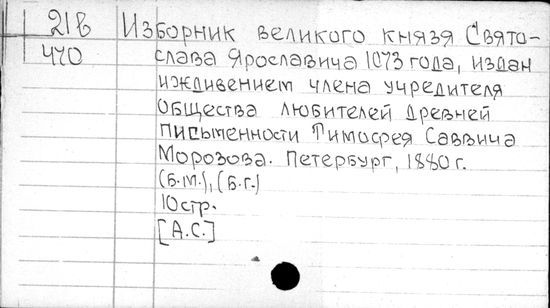 21в Изборник великого князя Свято-
470 слава Ярославича 1073 года, издан
иждивением члена учредителя
общества любителей древней
письменности Тимофея Саввича
Морозова. Петербург, 1880 г.
(б.м.), (б.г.)
10стр.
[А.С.]